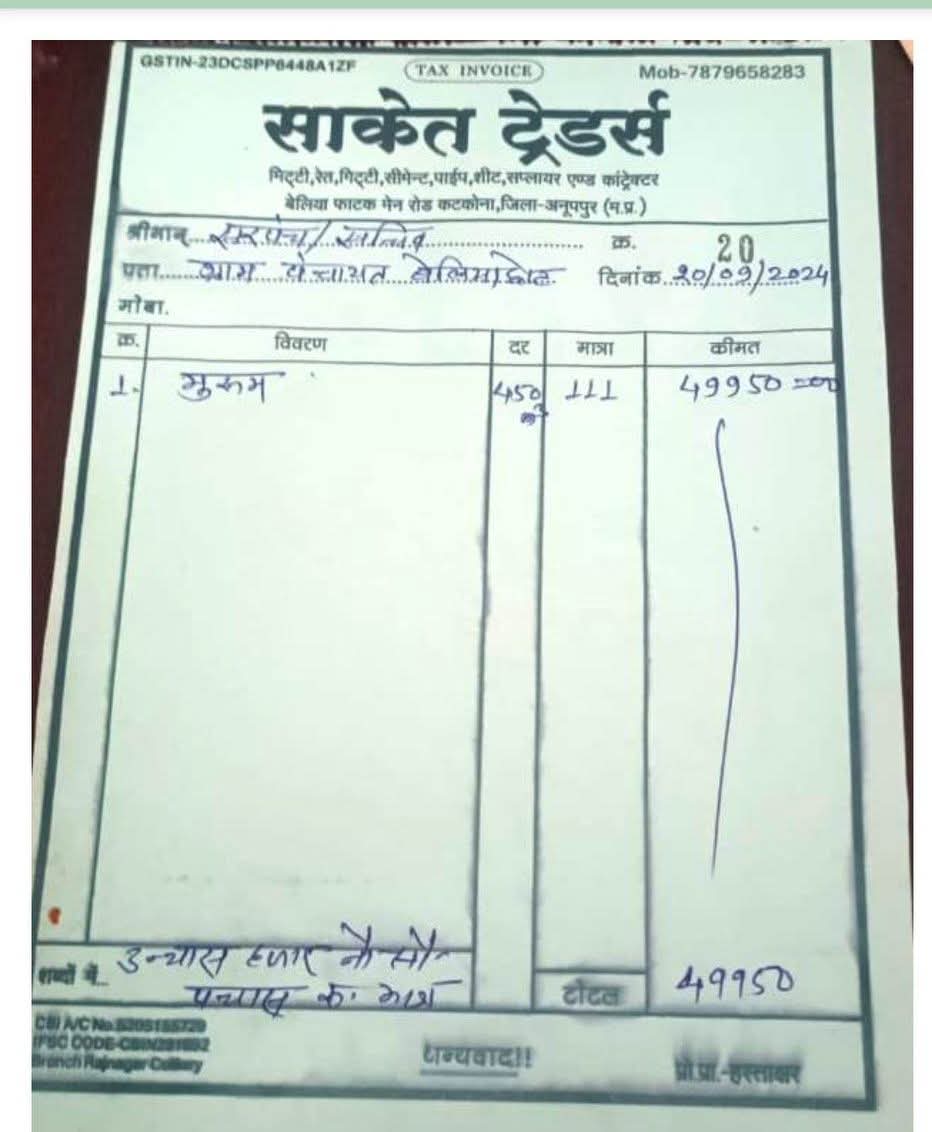 GSTIN-23DCSPP6448A1ZF TAX INVOICE Mob-7879658283
साकेत ट्रेडर्स
मिट्टी,रेत,गिट्टी,सीमेन्ट,पाईप,शीट,सप्लायर एण्ड कांट्रेक्टर
बेलिया फाटक मेन रोड कटकोना,जिला-अनूपपुर (म.प्र.)
श्रीमान् सरपंच/सचिव क्र. 20
पता ग्राम पंचायत दिनांक 20/09/2024
मोबा.
क्र. विवरण दर मात्रा कीमत
1. मुरूम 450 111 49950=00
शब्दों में.. उन्चास हजार नौ सौ
पचास रू. मात्र टोटल 49950
CBI A/C No.
IFSC CODE-
Branch Rajnagar Colliery
धन्यवाद!! प्रो.प्रा.-हस्ताक्षर